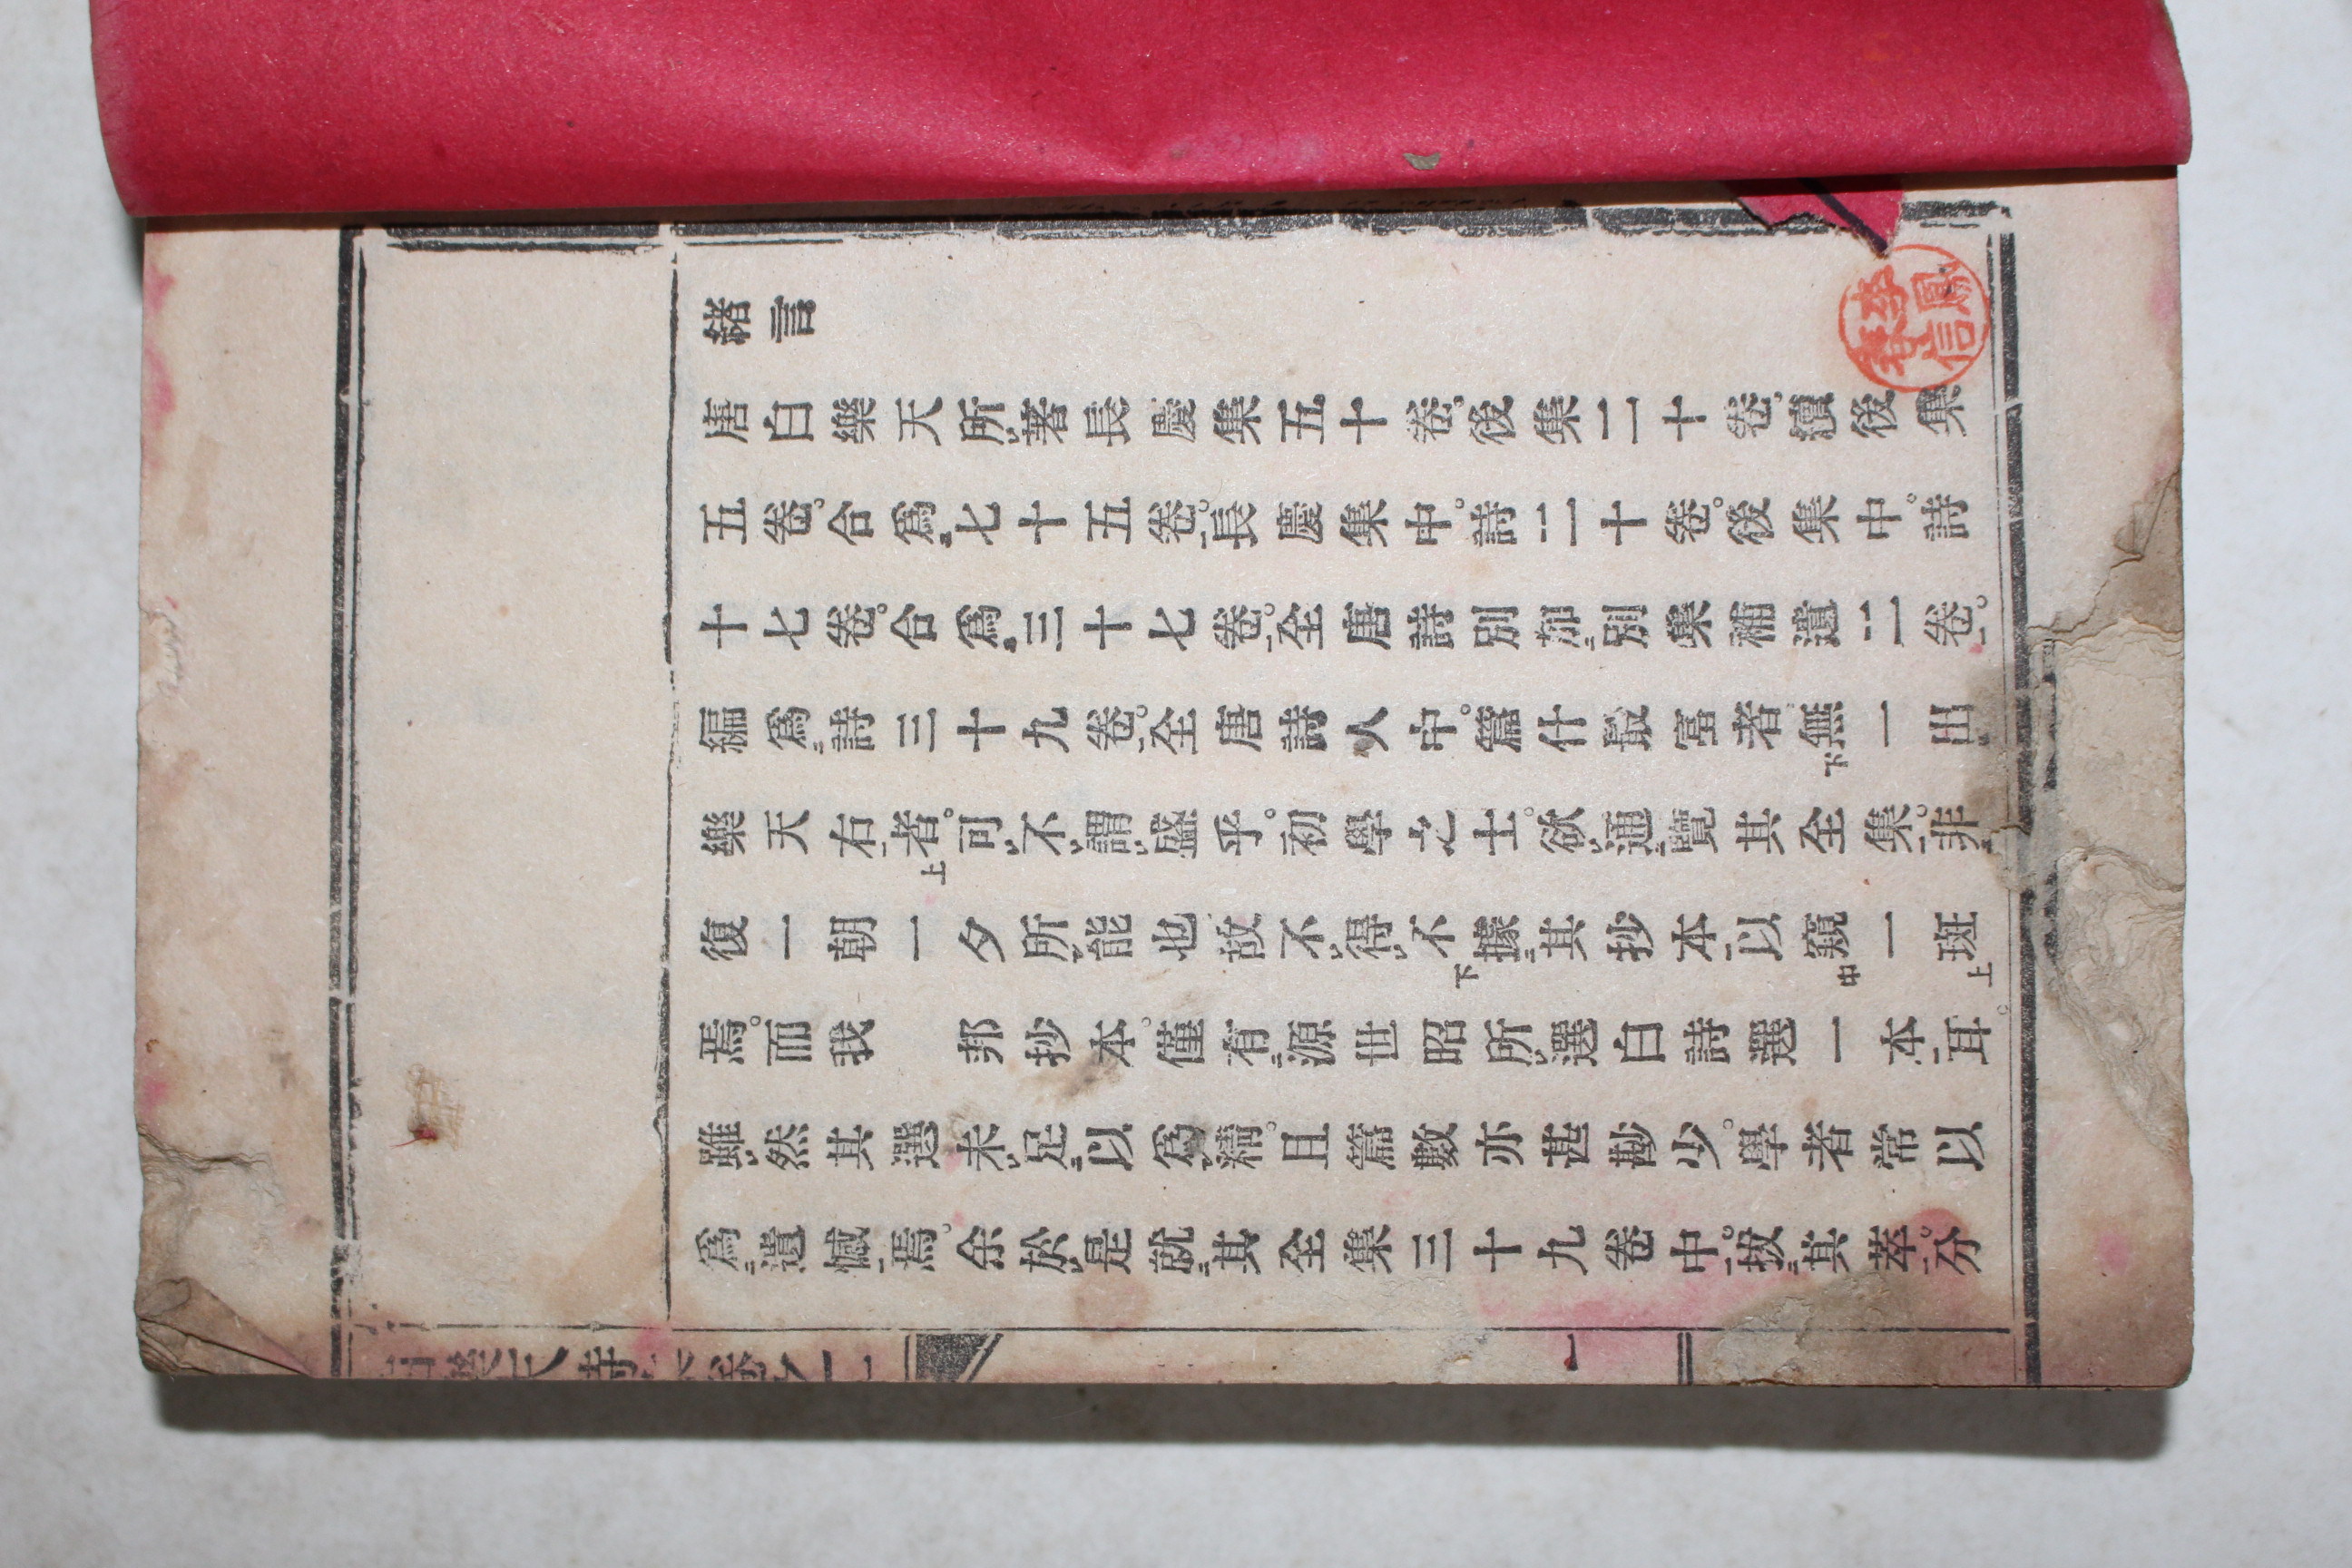 緒言
唐白樂天所著長慶集五十卷後集二十卷續後集
五卷。合爲七十五卷。長慶集中。詩二十卷。後集中。詩
十七卷。合爲三十七卷。全唐詩別加別集補遺二卷。
編爲詩三十九卷。全唐詩人中。篇什最富者無下一出
樂天右者上。可不謂盛乎。初學之士。欲通覽其全集。非
復一朝一夕所能也故不得不下據其抄本以窺中一斑上
焉。而我 邦抄本。僅有源世昭所選白詩選一本耳。
雖然其選未足以爲精。且篇數亦甚尠少。學者常以
爲遺憾焉。余於是就其全集三十九卷中。拔其萃。分
一
鳳信